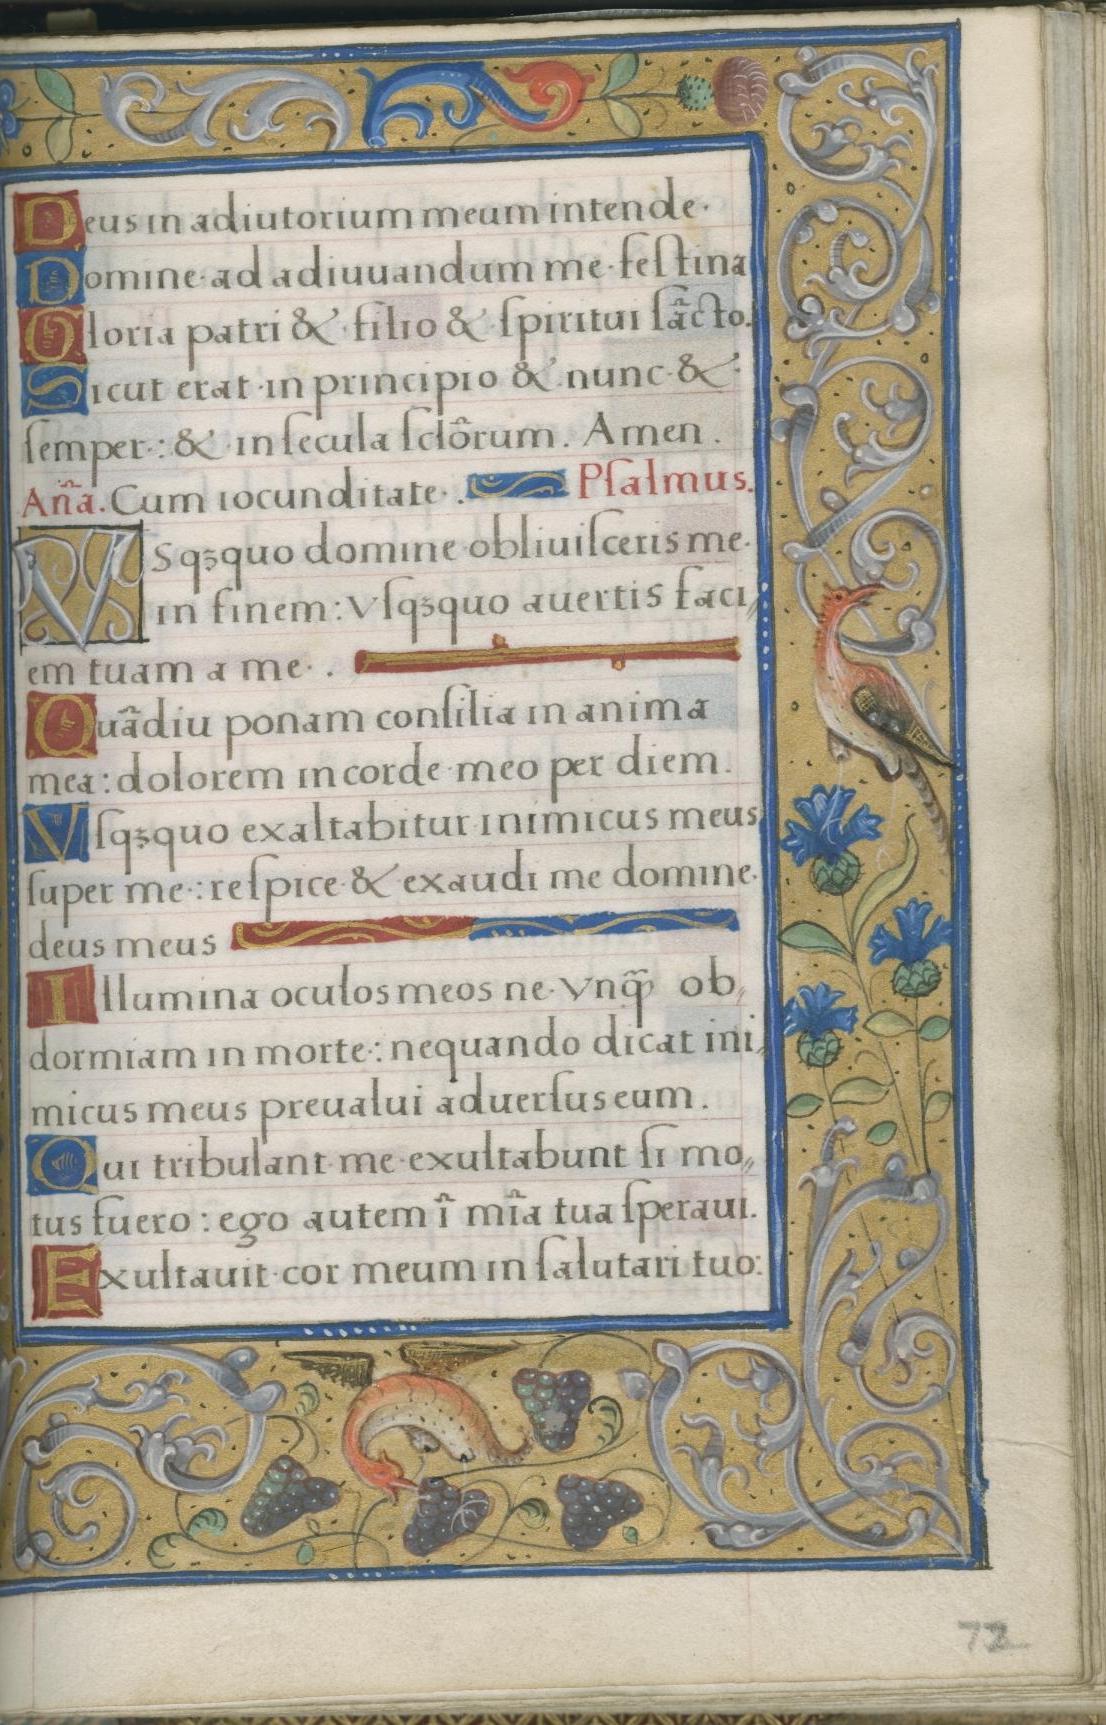 Deus in adiutorium meum intende·
Domine· ad adiuuandum me· feſtina
Gloria patri &· filio & · ſpiritui ſãcto.
Sicut erat· in principio & · nunc· & ·
ſemper·: & · in ſecula ſclôrum. Amen.
Añа. Cum iocunditate·. Pſalmus.
VSqꝫquo domine· obliuiſceris me·
in finem: vſqꝫquo auertis faci〃
em tuam a me· .
Quãdiu ponam conſilia in anima
mea: dolorem in corde· meo per diem.
Vſqꝫquo exaltabitur inimicus meus
ſuper me·: reſpice· & exaudi me domine·
deus meus
Illumina oculos meos ne· vnq̃ ob〃
dormiam in morte·: nequando dicat ini〃
micus meus preualui aduerſus eum.
Qui tribulant· me· exultabunt ſi mo〃
tus fuero: ego autem ĩ mĩa tua ſperaui.
Exultauit· cor meum in ſalutari tuo:
72